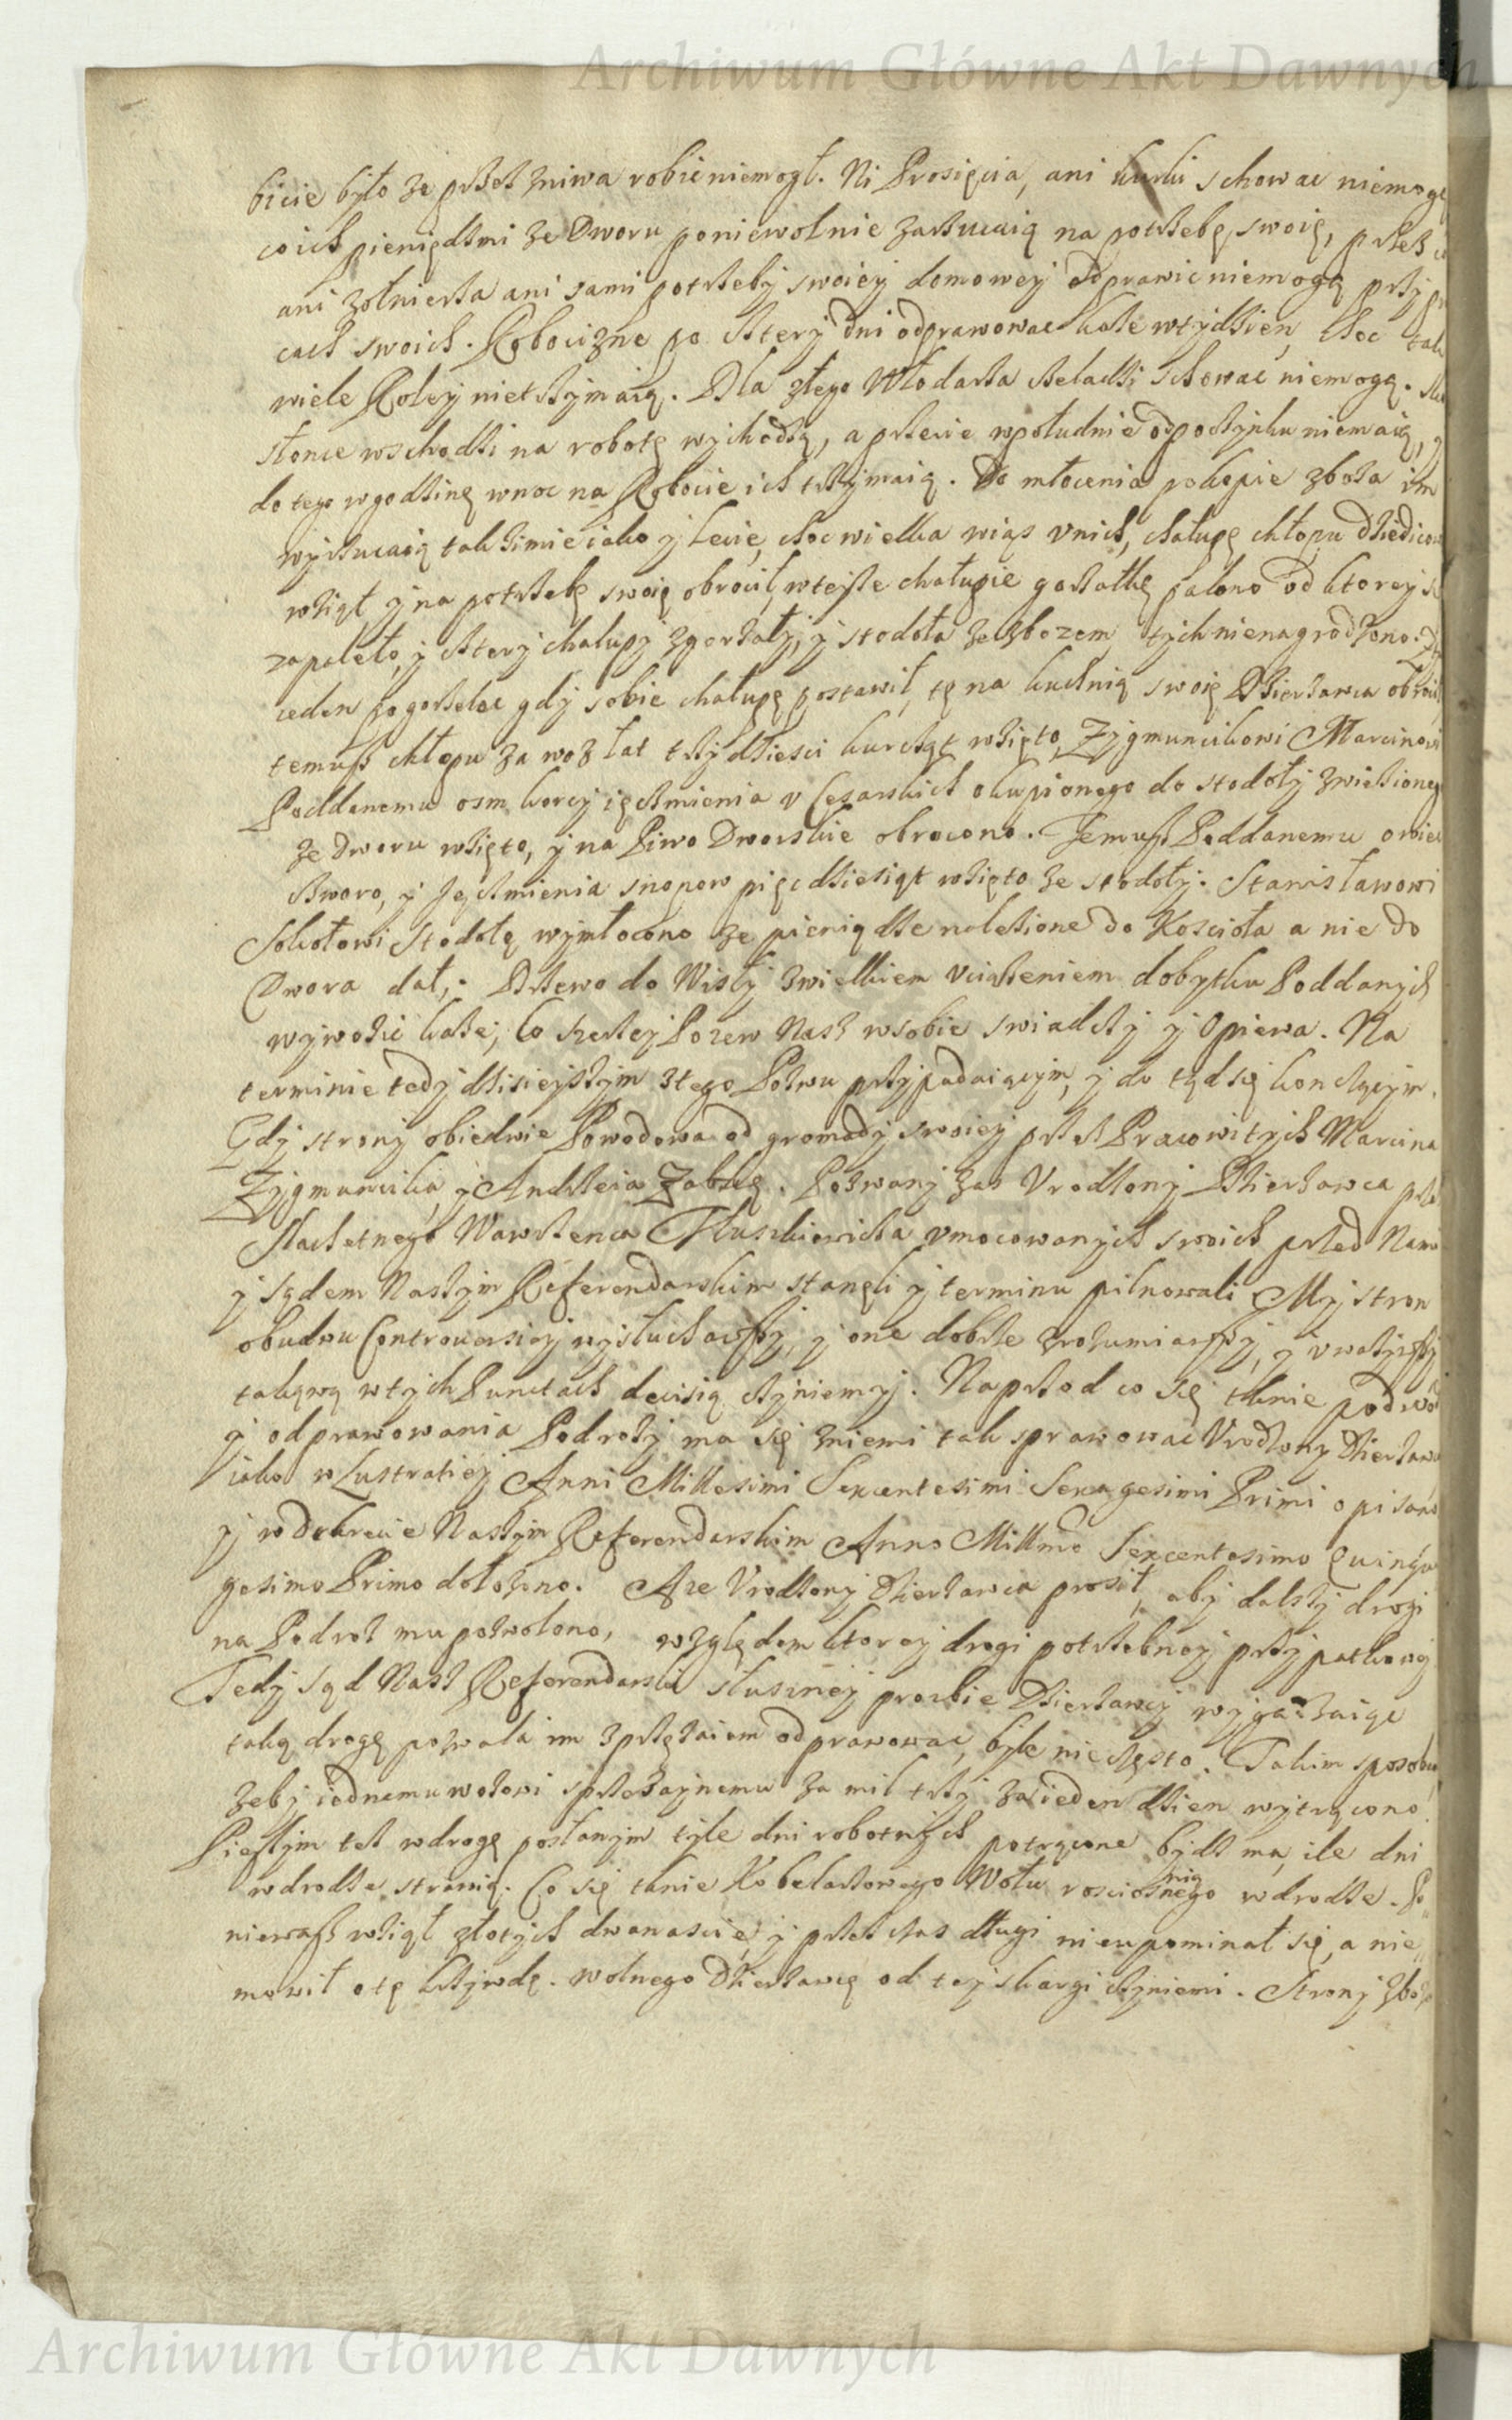 Archiwum Główne Akt Dawnych
bicie było ze przez zniwa robic niemogł. Ni Prosięcia, ani kurki schowac niemogę
co ich pieniędzmi ze Dworu poniewolnie zarzucaią na potrzebę swoię, przez
ani zołnierza ani sami potrzeby swoiey domowey odprawic niemogą przy
cach swoich. Robociznę po cztery dni odprawowac kaze w tydzien, choc tak
wiele Roley nietrzymaią. Dla złego Włodarza czeladzi schowac niemogą.
słonce wschodzi na robotę wychodzą, a przecie wpołudnie odpoczynku niemaią,
do tego wgodzinę wnoc na Robocie ich trzymaią. Do młocenia po kopie zboza im
wyrzucaią tak zimie iako y lecie, choc wielka wiąs vnich, chałupę chłopu dziedicz
wziął y na potrzebę swoię obrocił, wteyze chałupie gorzałkę palono od ktorey
zapaleło, y cztery chalupy zgorzały, y stodoła ze zbozem, tych nienagrodzono.
ieden pogorzelec gdy sobie chałupę postawił, tę na kuchnią swoię Dzierzawca obrocił,
temuß chłopu za woz lat trzydziesci kurcząt wzięto, Zygmuncikowi Marcinowi
Poddanemu osm korcy ięczmienia v Cesarskich okupionego do stodoły zwiezionego
ze dworu wzięto, y na Piwo Dworskie obrocono. Temuß Poddanemu owiec
czworo, y Jęczmienia snopow pięcdziesiąt wzięto ze stodoły. Stanisławowi
Sokołowi stodołę wymłocono ze pieniądze nalezione do Kosciola a nie do
Dwora dał, Drzewo do Wisły zwielkiem vciązeniem dobytku Poddanych
wywozic kaze, co szerzey Pozew Nasz wsobie swiadczy y Opiewa. Na
terminie tedy dzisieyszym z tego Pozwu przypadaiącym, y do tąd się konczącym.
Gdy strony obiedwie Powodowa od gromady swoiey przez Pracowitych Marcina
Zygmuncika, y Andrzeia Zabkę. Pozwany zas Vrodzony Dzierzawca prze
Slachetnego Wawrzenca Tłuszkiewicza vmocowanych swoich przed Nami
y sądem Naszym Referendarskim stanęli y terminu pilnowali My stron
obudwu Controuersiey wysłuchawßy, y one dobrze zrozumiawßy, y vwazywßy
takąwą wtych Punctach decisią czyniemy. Naprzod co się tknie podwod
y odprawowania Podrozy ma się zniemi tak sprawowac Vrodzony Dzierzawca
iako w Lustratiey Anni Millesimi Sexcentesimi Sexagesimi Primi opisano
y w dekrecie Naszym Referendarskim Anno Millmo Sexcentesimo Quinqua
gesimo Primo dołozono. A ze Vrodzony Dzierzawca prosił, aby dalszy drogi
na Podroz mu pozwolono, względem ktorey drogi potrzebney przypatkowey
Tedy Sąd Nasz Referendarski słuszney prozbie Dzierzawcy wygadzaiąc
taką drogę pozwala im zprzęzaiem odprawowac, byle nie często. Takim sposobem
zeby iednemu wołowi sprzezaynemu za mil trzy za ieden dzien wytrącono.
Pießym tez wdrogę posłanym tyle dni robotnych potrącone bydz ma, ile dni
wdrodze strawią. Co się tknie Kobelaszowego Wołu wdrodze. Po
niewaß wziął złotych dwanascie, y przez czas długi nieupominał się, a nie
mowił otę krzywdę. wolnego Dzierzawcę od tey skargi czyniemi. Strony
Archiwum Główne Akt Dawnych